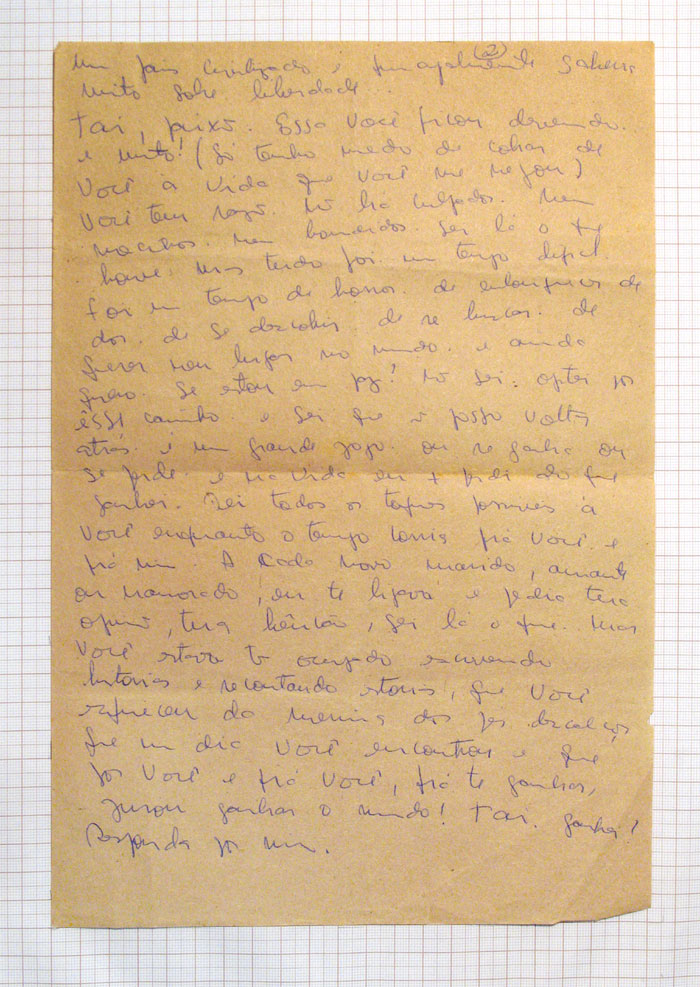 (2)
um país civilizado e principalmente sabem
muito sobre liberdade..
Taí, peixe. Essa você ficou devendo...
e muito! (Só tenho medo de cobrar de
você à vida que você me negou)
Você tem razão. Ñ há culpados. Nem
mocinhos. Nem bandidos. Sei lá o que
houve. Mas tudo foi um tempo difícil.
Foi um tempo de horror. de
de se descobrir. de se buscar. de
querer meu lugar no mundo. e ainda
quero. Se estou em paz? Ñ sei. optei por
êsse caminho. e sei que ñ posso voltar
atrás. é um grande jogo. ou se ganha ou
se perde. e na vida eu + perdi do que
ganhei. Dei todos os toques possíveis à
você enquanto o tempo corria prá você e
prá mim. A cada novo marido, amante
ou namorado, eu te ligava e pedia tua
opinião, tua bênção, sei lá o que. Mas
você estava tão ocupado escrevendo
histórias e recontando estórias, que você
esqueceu da menina dos pés descalços
que um dia você encontrou e que
por você e prá você, prá te ganhar,
jurou ganhar o mundo! Taí. Ganhei?
Responda por mim.